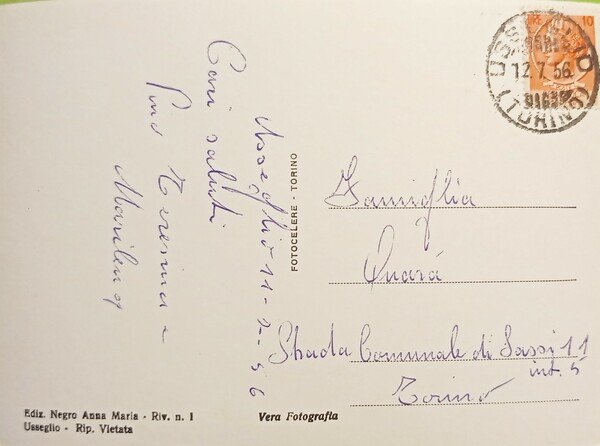 Usseglio 11-7-56
Cari saluti
Pino Teresina e
Marilena
Famiglia
Quarà
Strada Comunale di Sassi 11
int. 5
Torino
FOTOCELERE - TORINO
USSEGLIO
12.7.56
(TORINO)
10
Ediz. Negro Anna Maria - Riv. n. 1
Usseglio - Rip. Vietata
Vera Fotografia